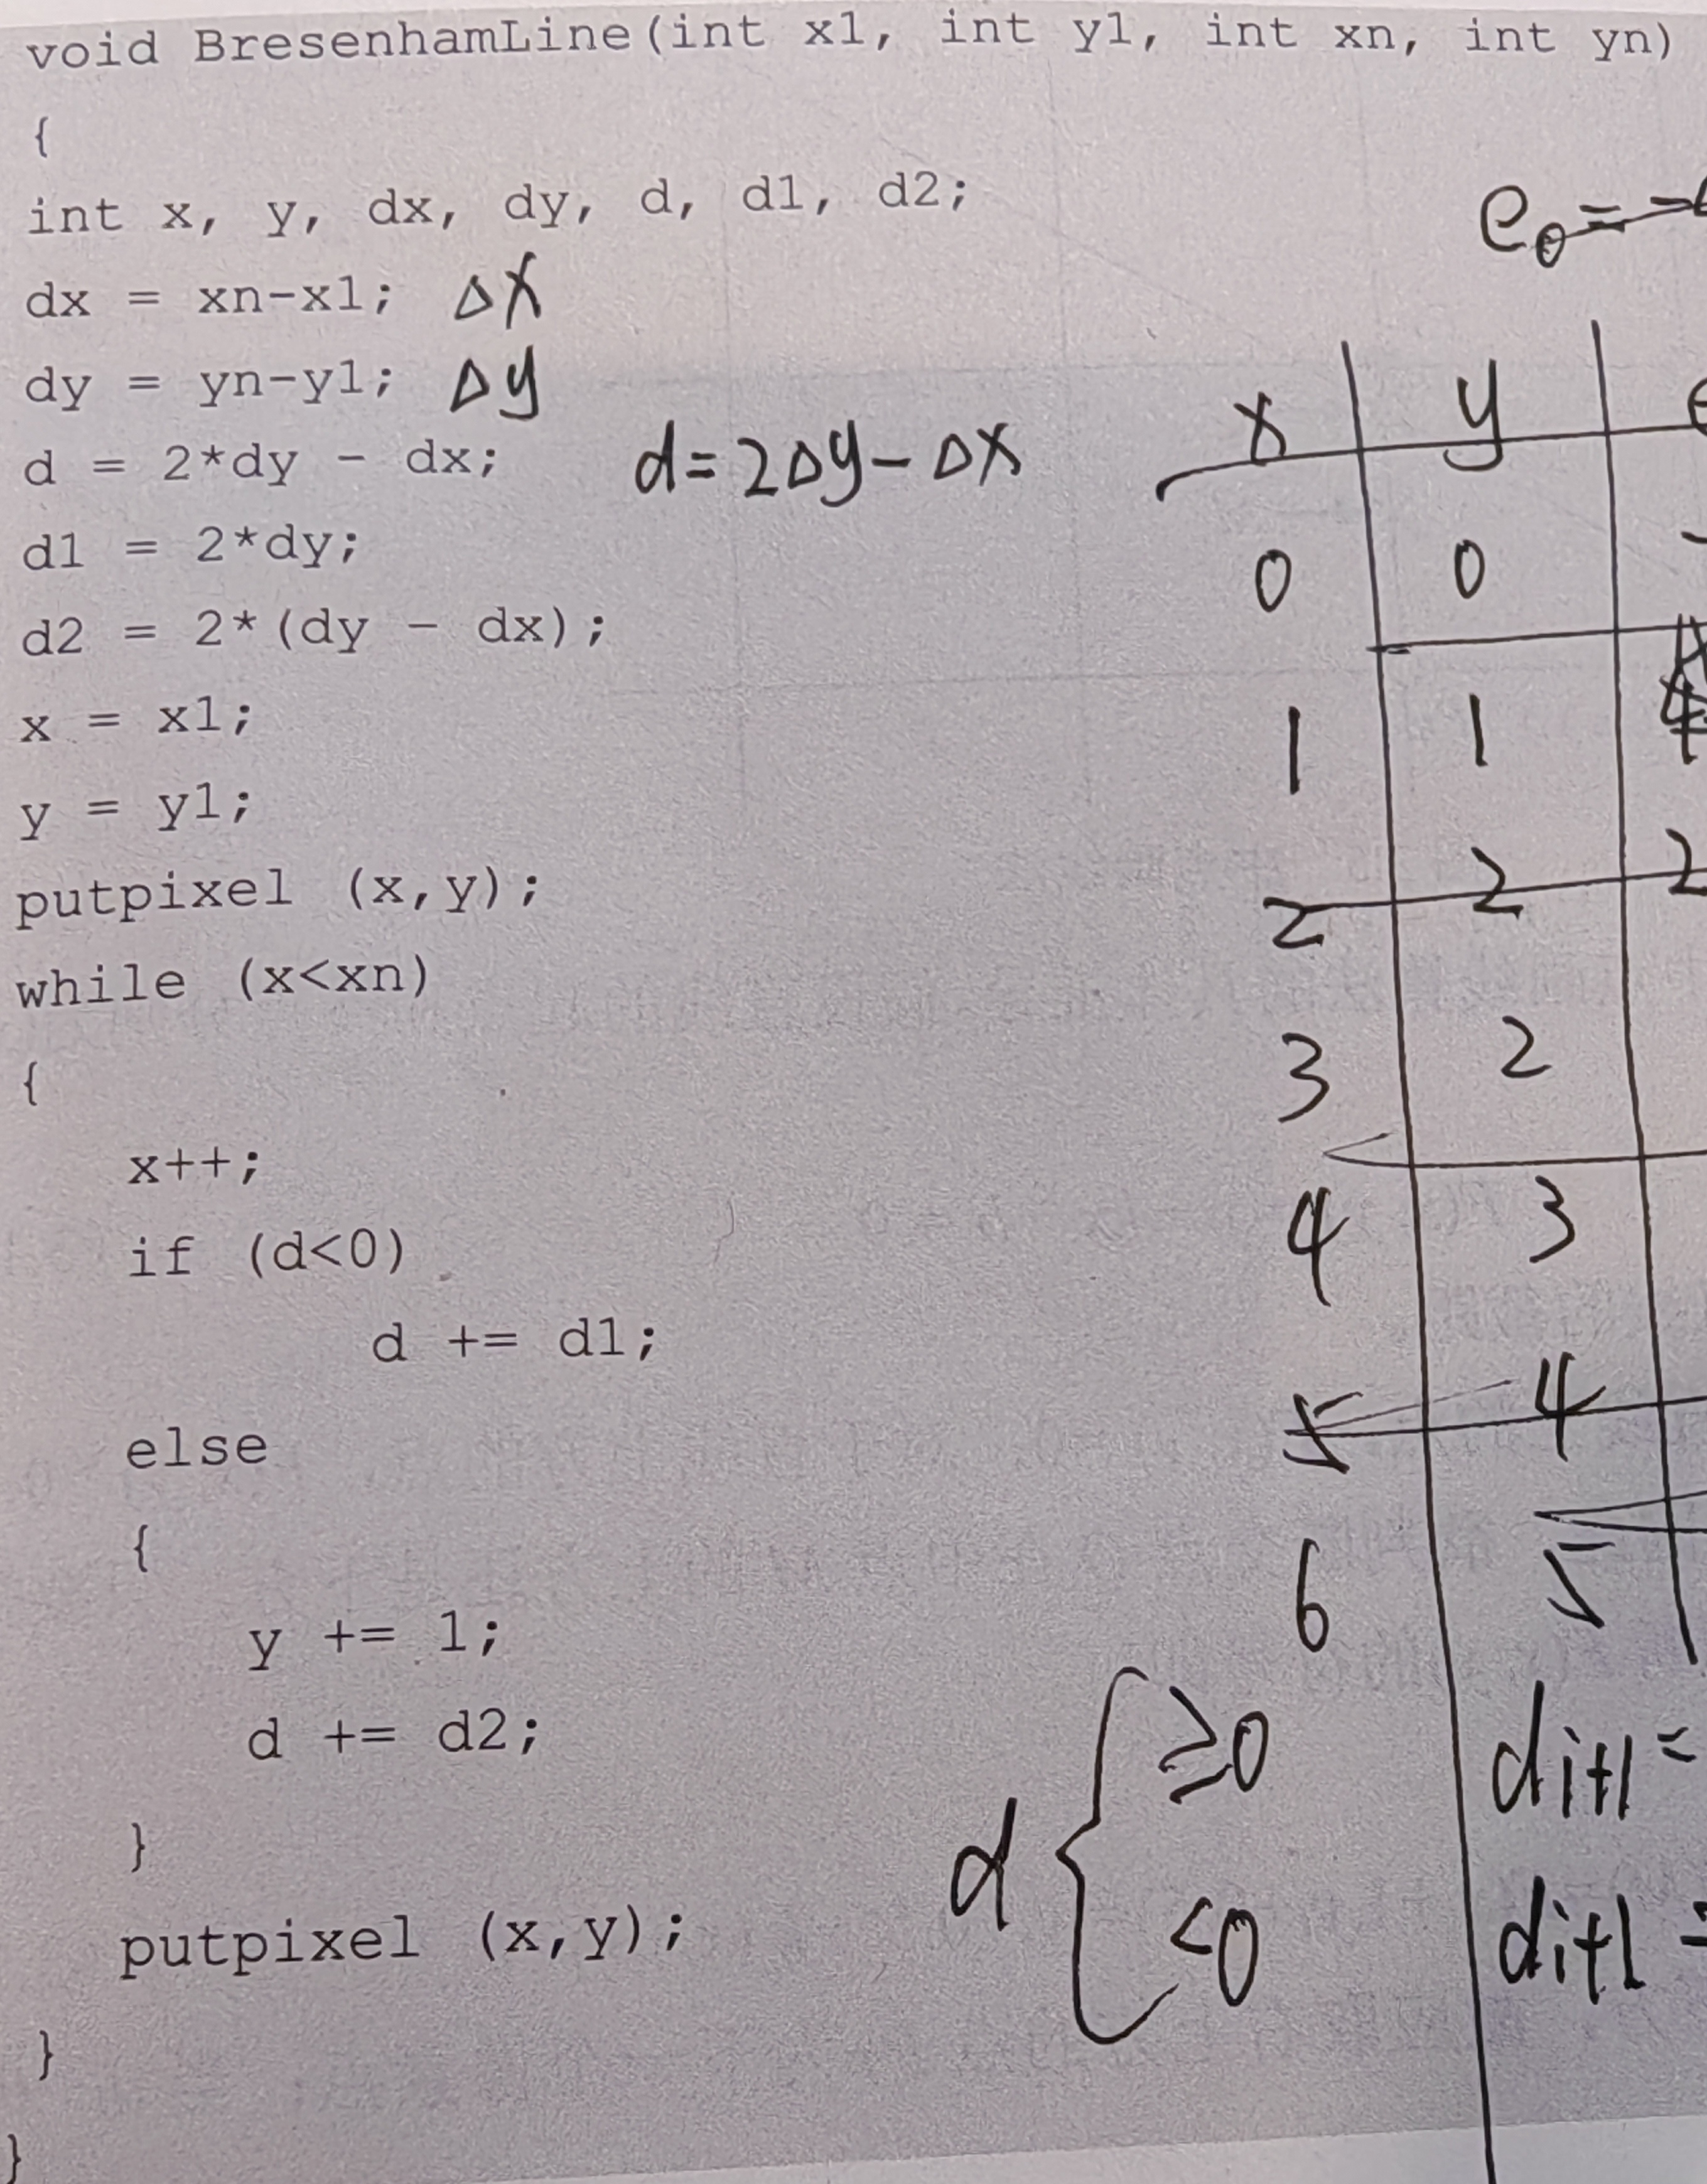 void BresenhamLine(int x1, int y1, int xn, int yn)
{
int x, y, dx, dy, d, d1, d2;
e₀=
dx = xn-x1; Δx
dy = yn-y1; Δy
d = 2*dy - dx; d=2Δy-Δx
d1 = 2*dy;
d2 = 2*(dy - dx);
x = x1;
y = y1;
putpixel (x,y);
while (x<xn)
{
x++;
if (d<0)
d += d1;
else
{
y += 1;
d += d2;
}
putpixel (x,y);
}
}
x y
0 0
1 1
2 2 2
3 2
4 3
5 4
6 5
d { ≥0 di+1 =
<0 di+1 =